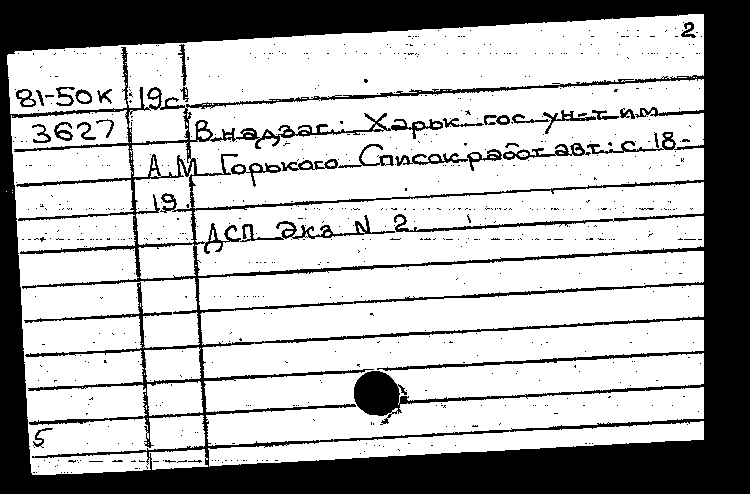 2
81-50к 19с
3627 В надзаг.: Харьк. гос. ун-т им
А.М Горького Список работ авт.: с. 18-
19.
ДСП Экз N 2.
5